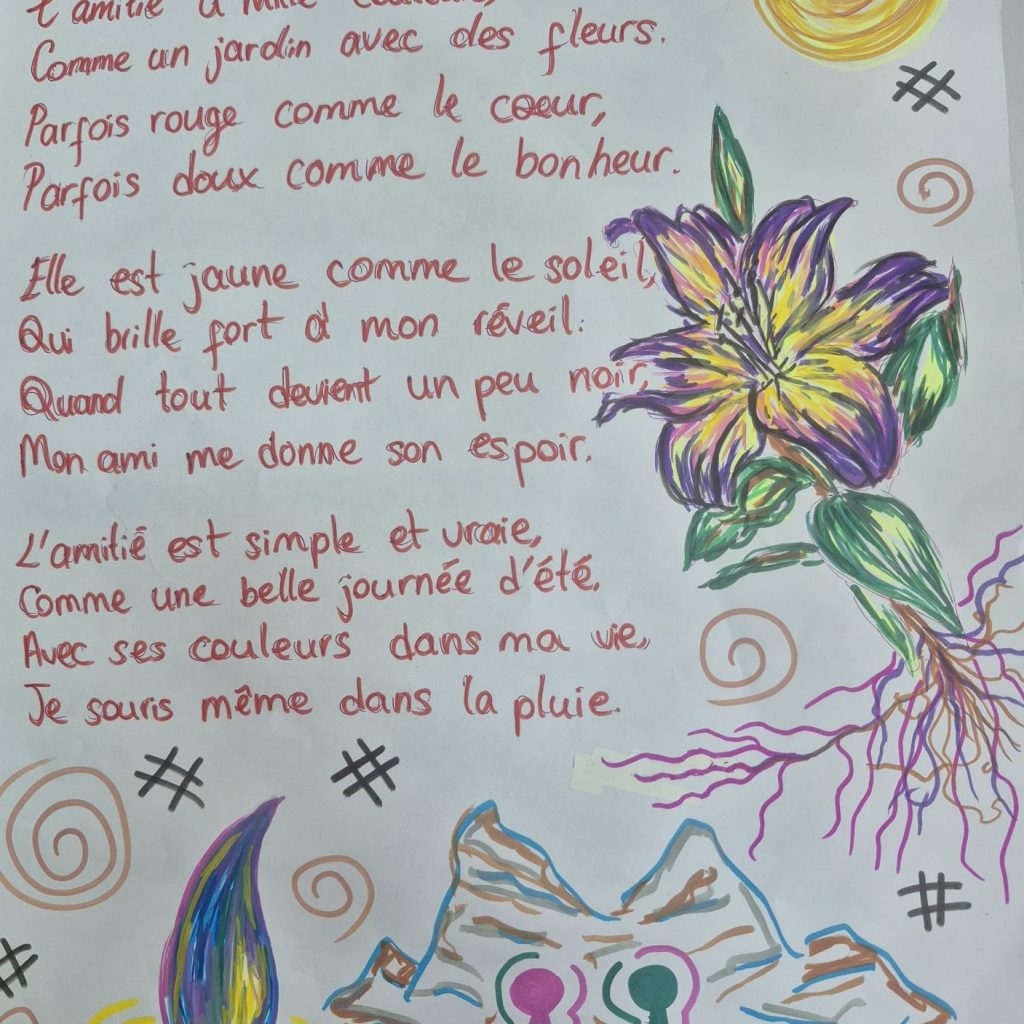 L'amitié a mille couleurs,
Comme un jardin avec des fleurs.
Parfois rouge comme le coeur,
Parfois doux comme le bonheur.
Elle est jaune comme le soleil,
Qui brille fort à mon réveil.
Quand tout devient un peu noir,
Mon ami me donne son espoir.
L'amitié est simple et vraie,
Comme une belle journée d'été.
Avec ses couleurs dans ma vie,
Je souris même dans la pluie.